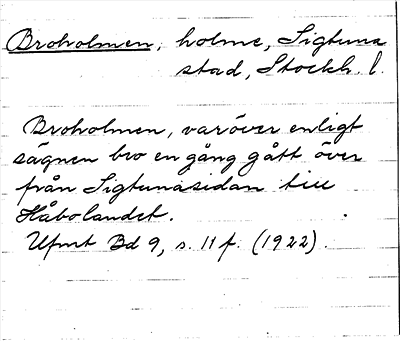 Broholmen, holme, Sigtuna
stad, Stockh. l.
Broholmen, varöver enligt
sägnen bro en gång gått över
från Sigtunasidan till
Håbolandet.
Ufmt Bd 9, s. 11 f. (1922).